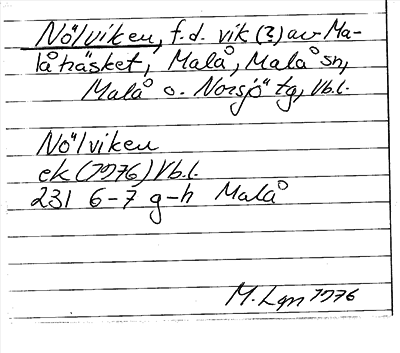 Nölviken, f.d. vik (?) av Ma-
låträsket, Malå, Malå sn,
Malå o. Norsjö tg, Vb.l.
Nölviken
ek (1976) Vb.l.
231 6-7 g-h Malå
M. Lgn 1976